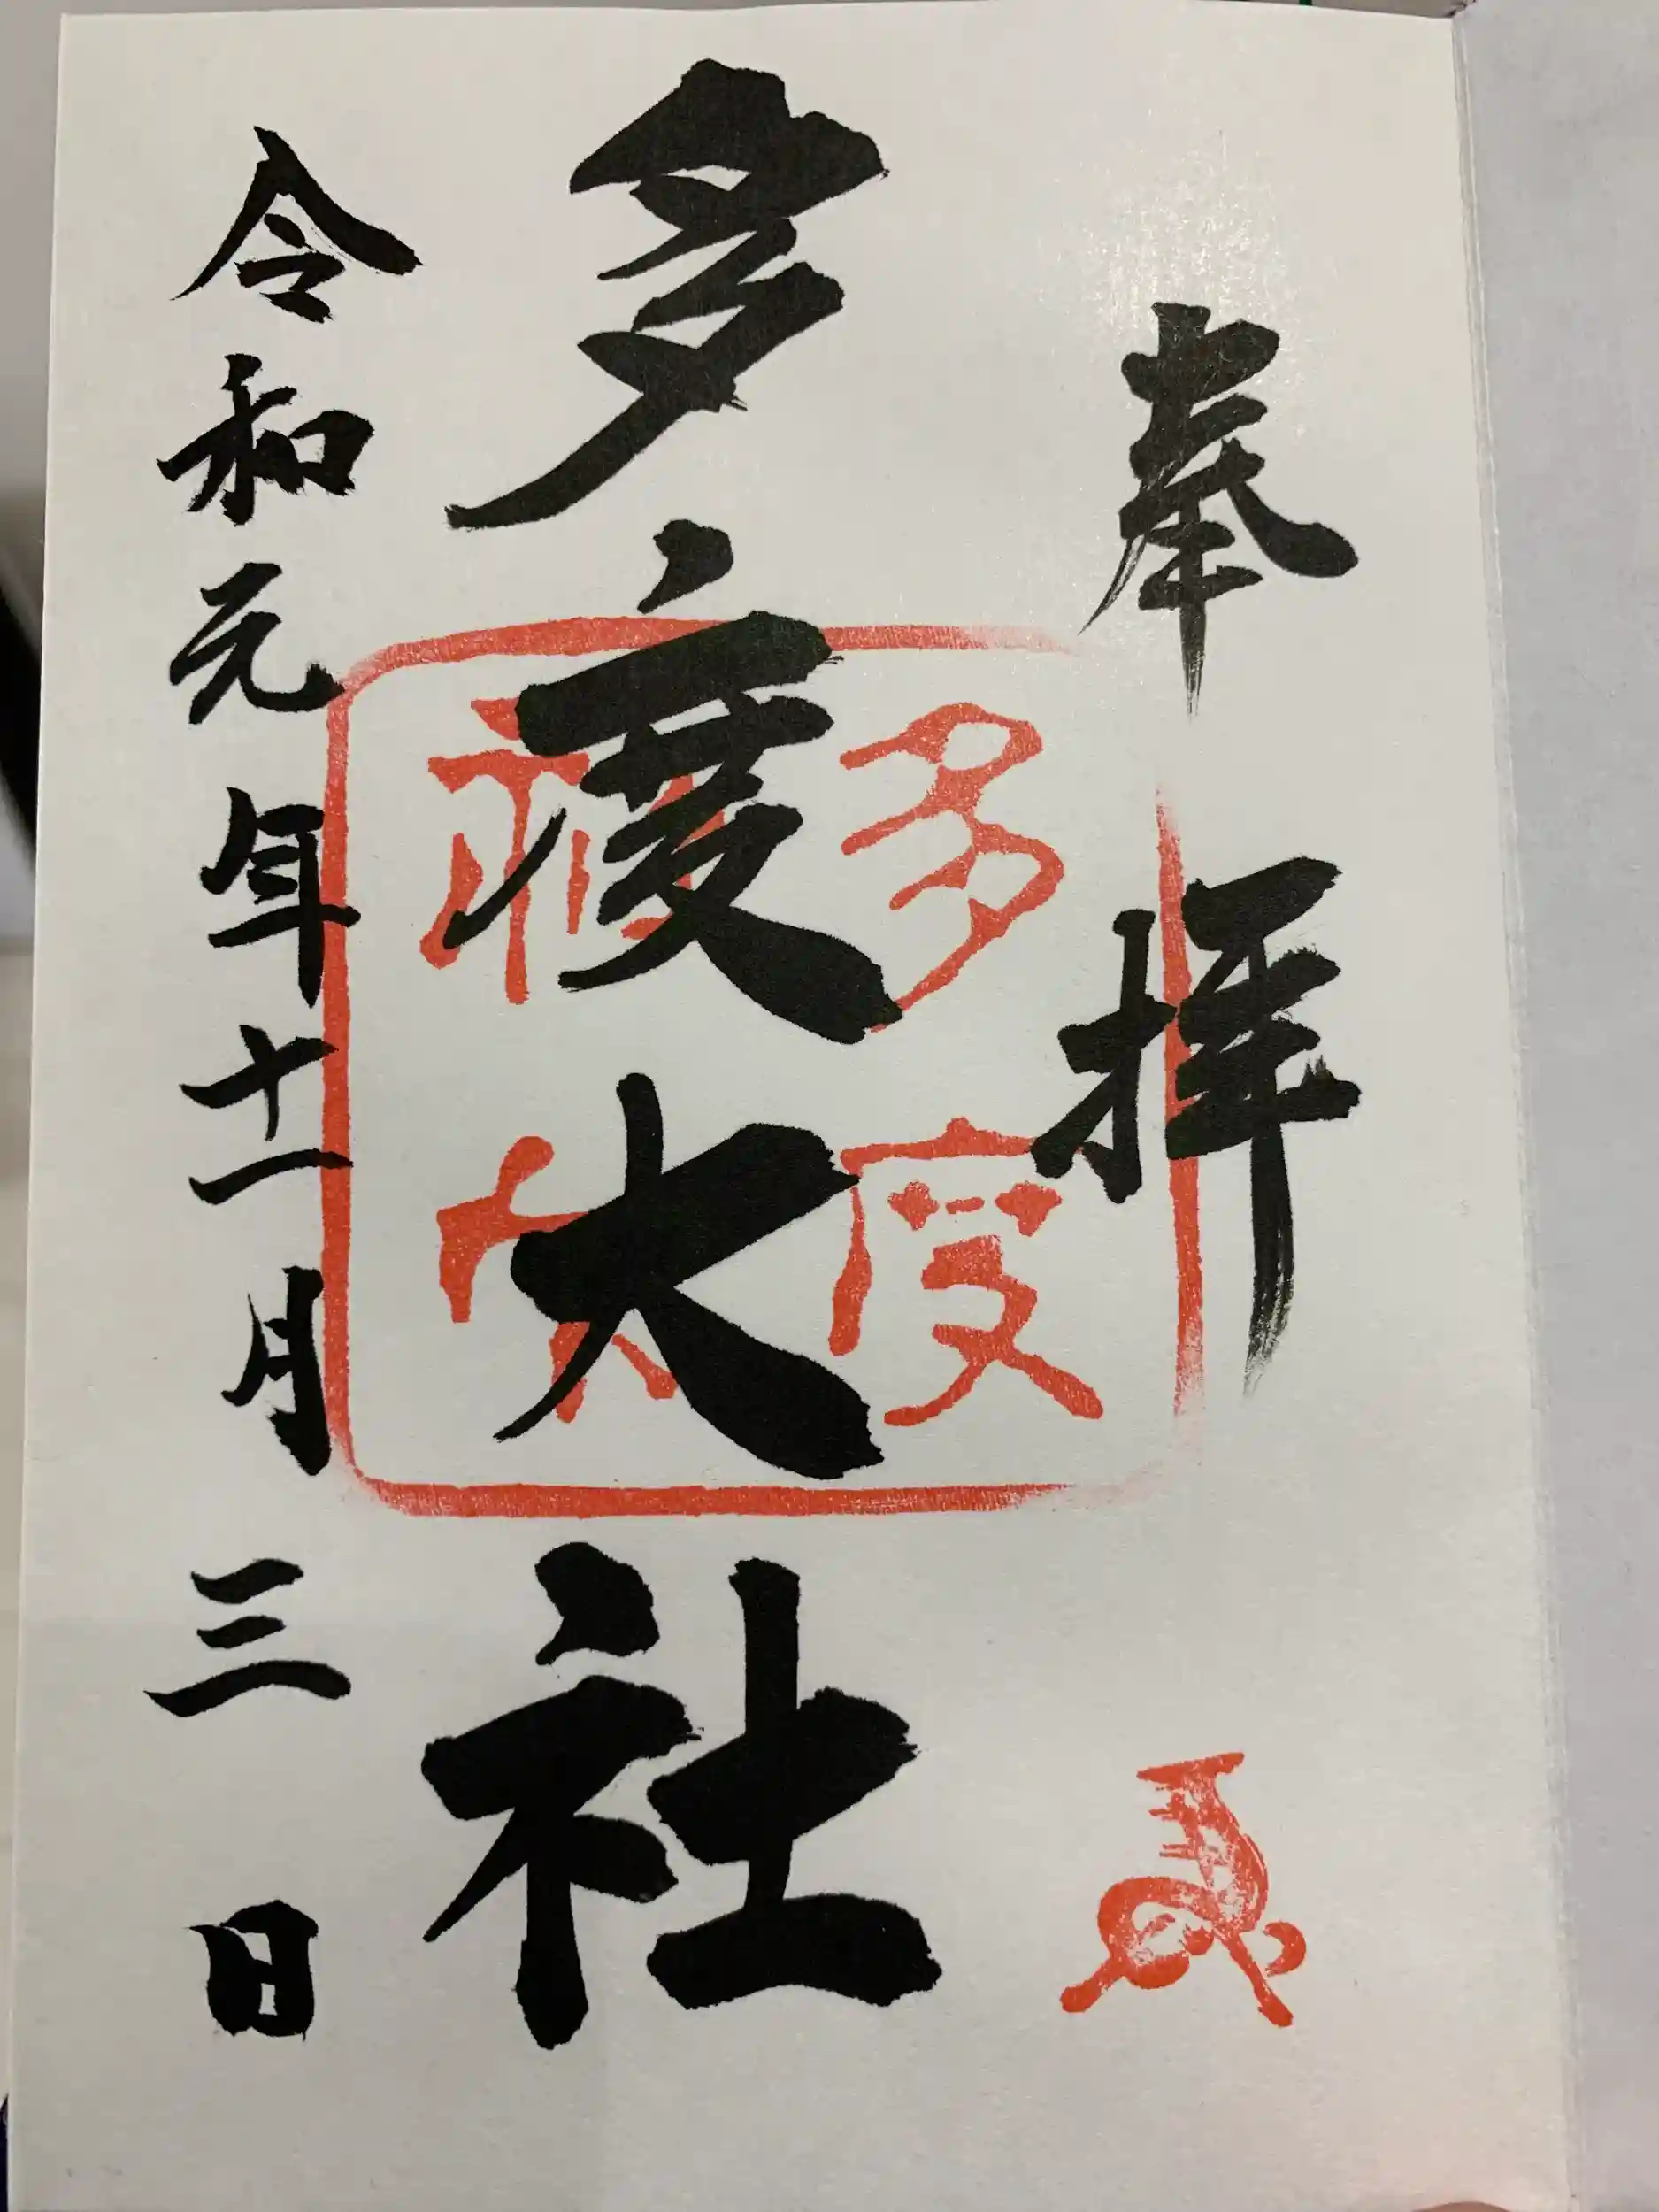 奉拝
多度大社
多度
大社
令和元年十一月三日